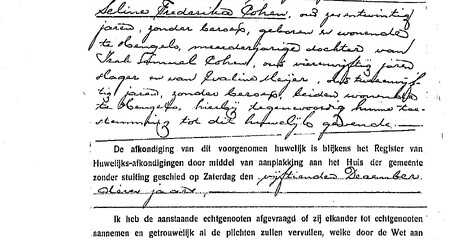 Seline Frederika Cohen, oud zevenentwintig
jaren, zonder beroep, geboren en wonende
te Hengelo, meerderjarige dochter van
Izak Samuel Cohen, oud vierenvijftig jaren
slager en van Evalina Meijer, oud tweeenvijf-
tig jaren, zonder beroep, beiden wonende
te Hengelo, hierbij tegenwoordig hunne toe-
stemming tot dit huwelijk gevende.
De afkondiging van dit voorgenomen huwelijk is blijkens het Register van
Huwelijks-afkondigingen door middel van aanplakking aan het Huis der gemeente
zonder stuiting geschied op Zaterdag den vijftienden December
dezes jaars.
Ik heb de aanstaande echtgenooten afgevraagd of zij elkander tot echtgenooten
aannemen en getrouwelijk al de plichten zullen vervullen, welke door de Wet aan